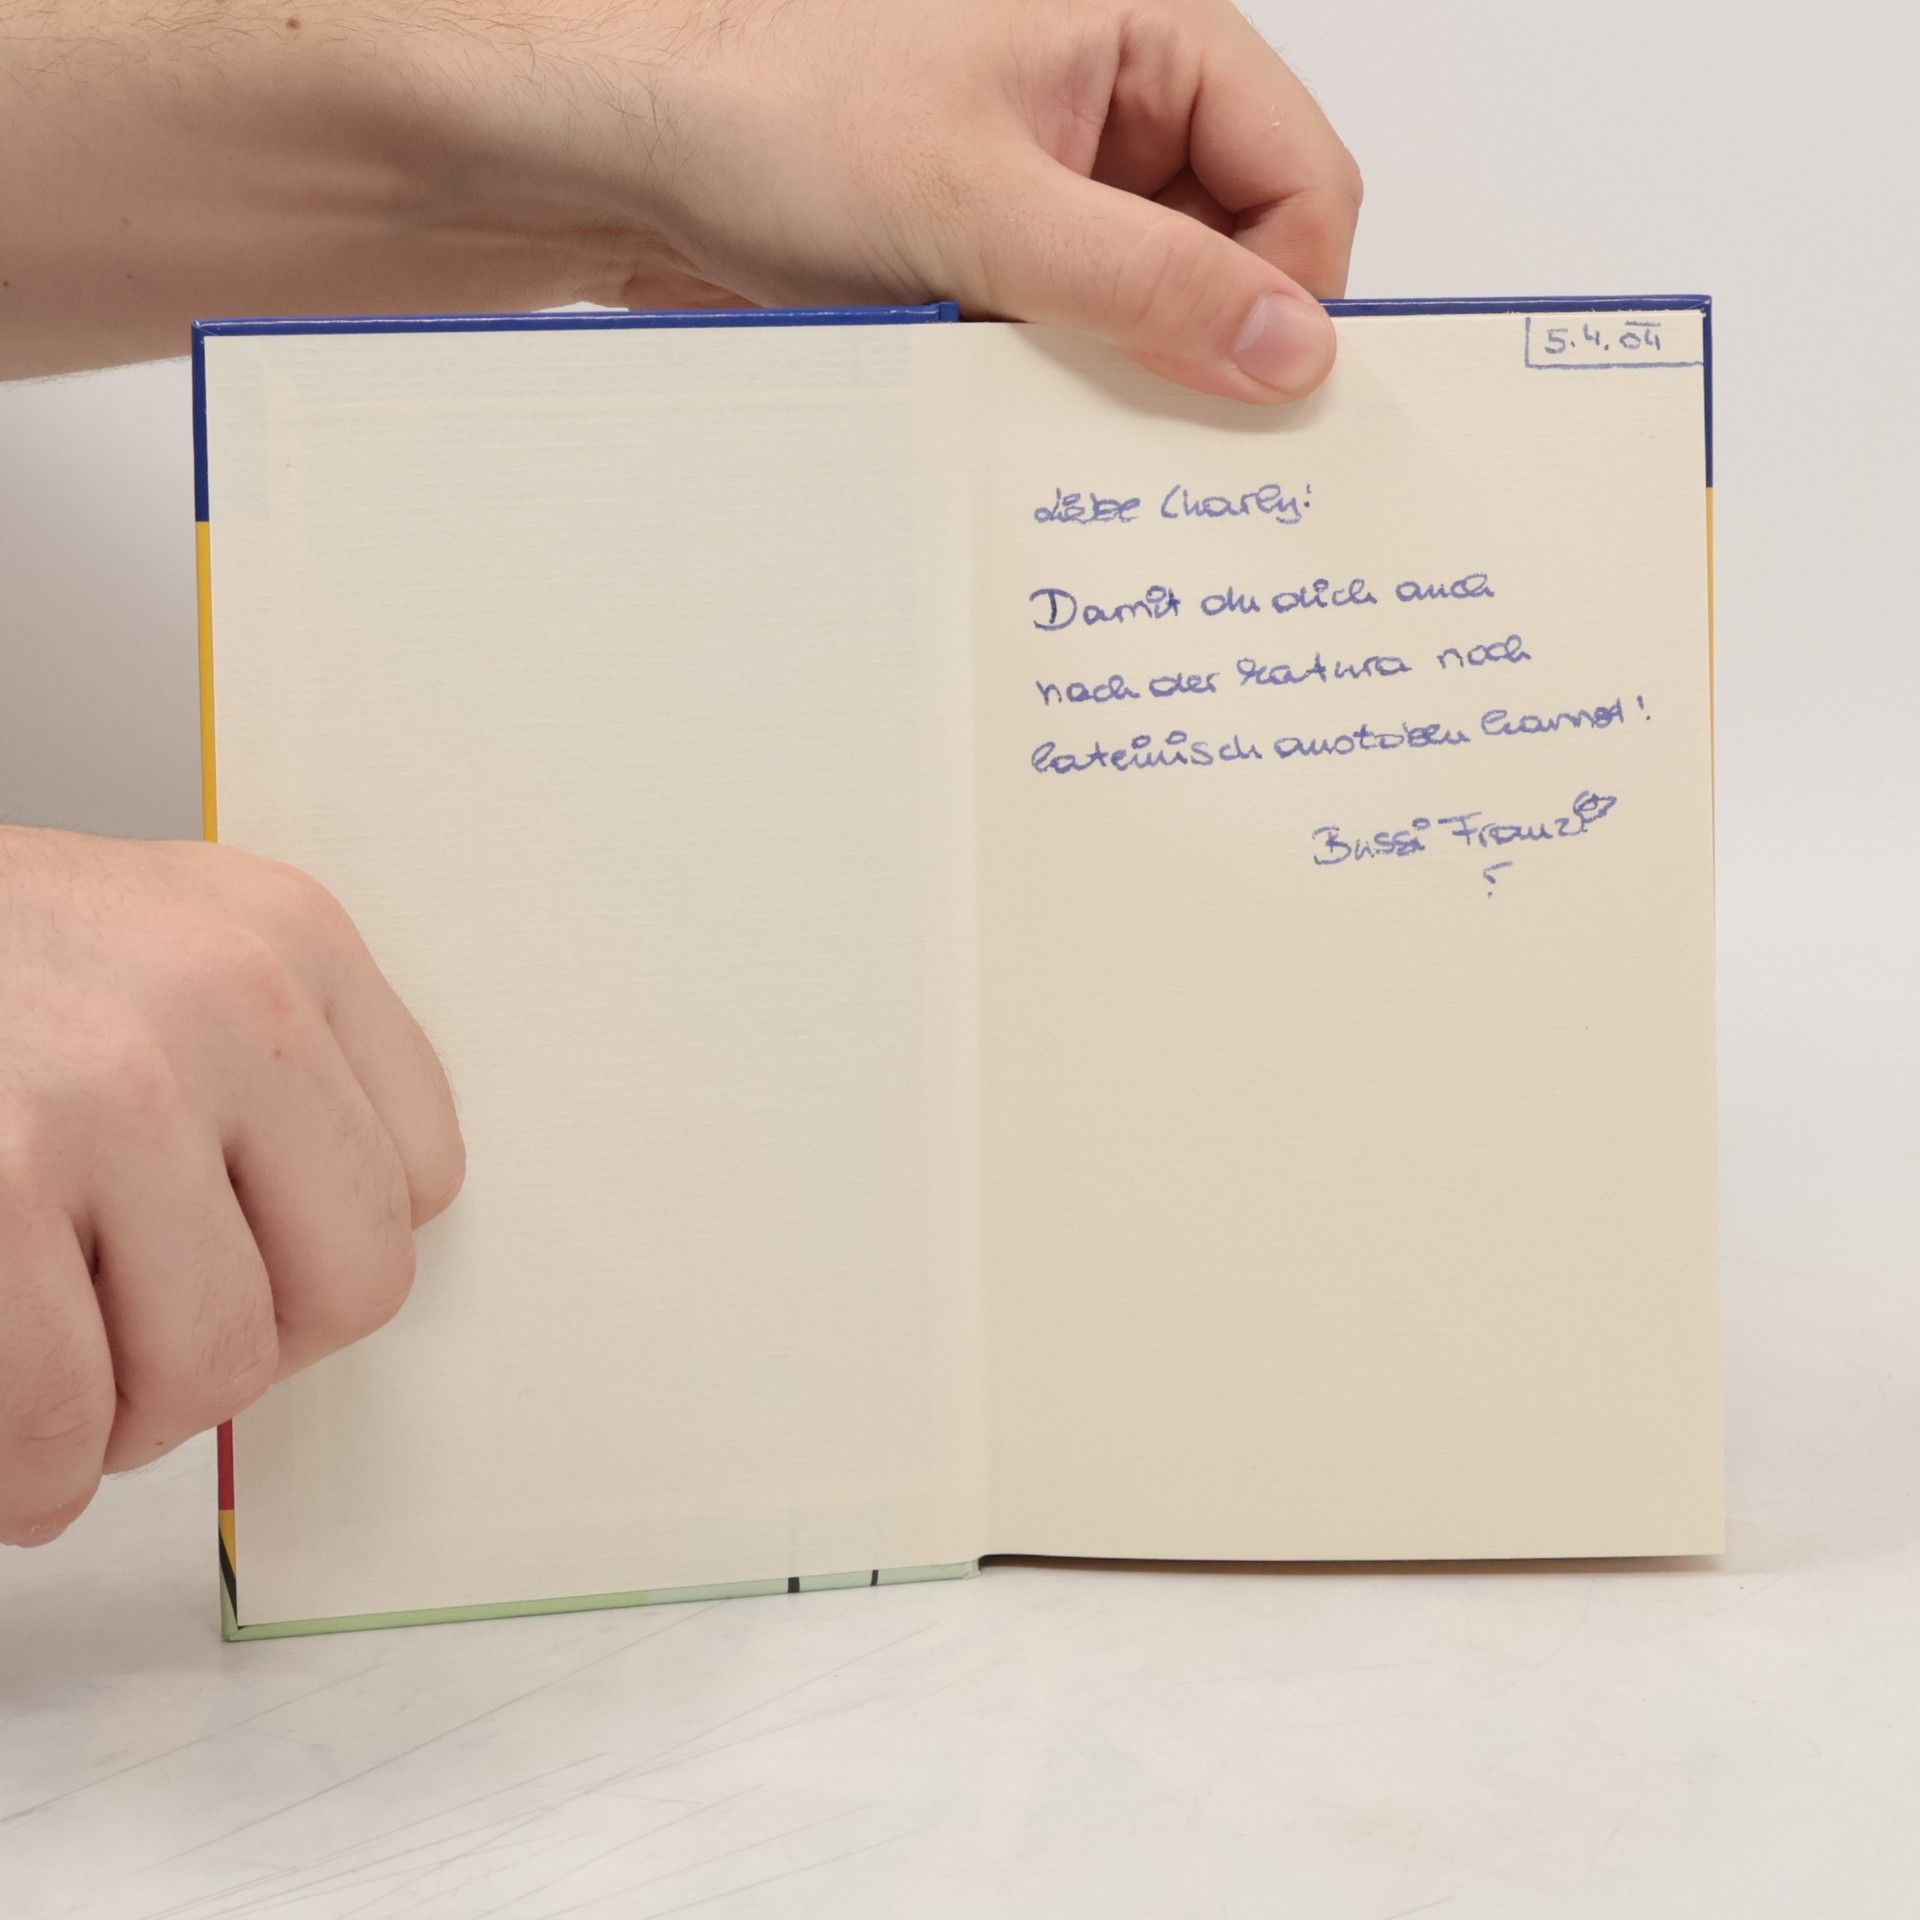 5.4.04
Liebe Charly!
Damit du dich auch
nach der Matura noch
lateinisch austoben kannst!
Bussi Franzi